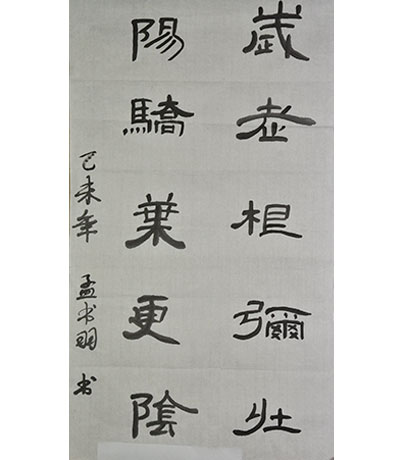 歲老根彌壯
陽驕葉更陰
己未年 孟书明 书